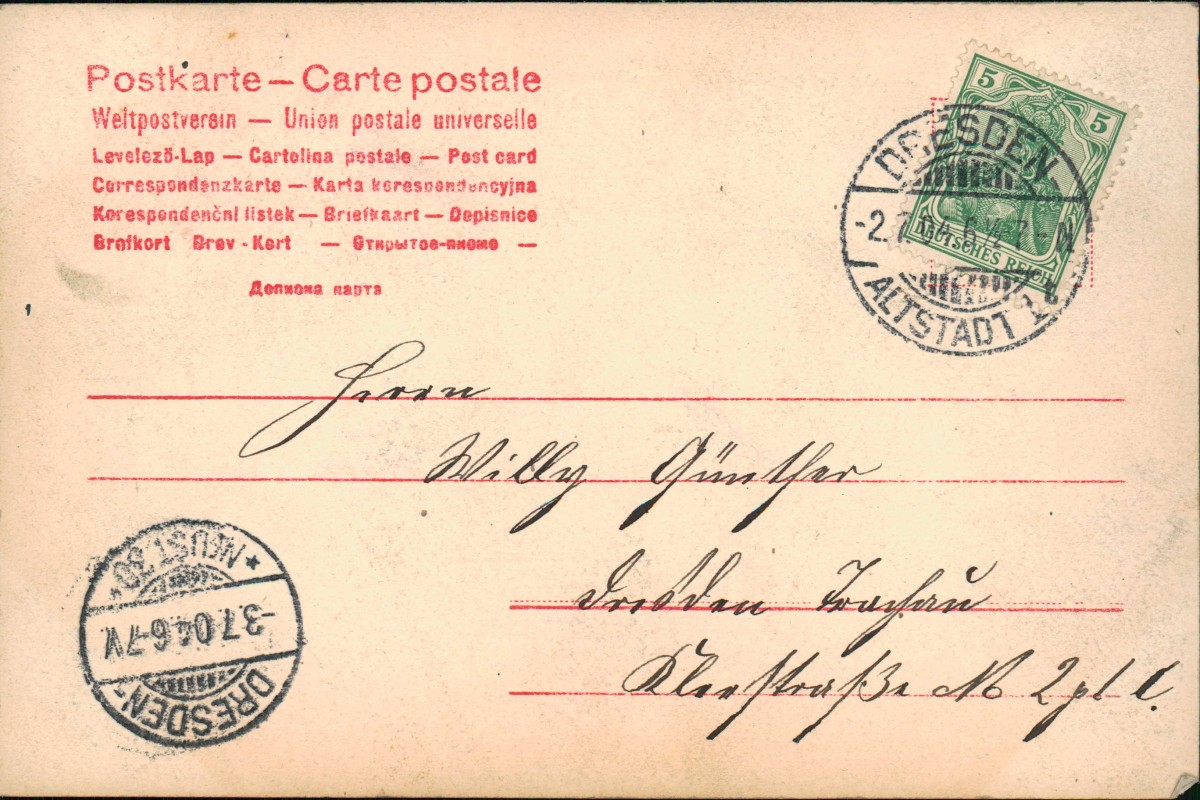 Postkarte — Carte postale
Weltpostverein — Union postale universelle
Levelező-Lap — Cartolina postale — Post card
Correspondenzkarte — Karta korespondencyjna
Korespondenční listek — Briefkaart — Dopisnice
Brefkort Brev-Kort — Открытое-письмо —
Дописна карта
5 5
DEUTSCHES REICH
DRESDEN
-2.7.04.6-7-N
ALTSTADT 1 b
Herrn
Willy Günther
Dresden Trachau
straße No 2 pt l.
* NEUST. 30 *
-3.7.04.6-7V.
DRESDEN-